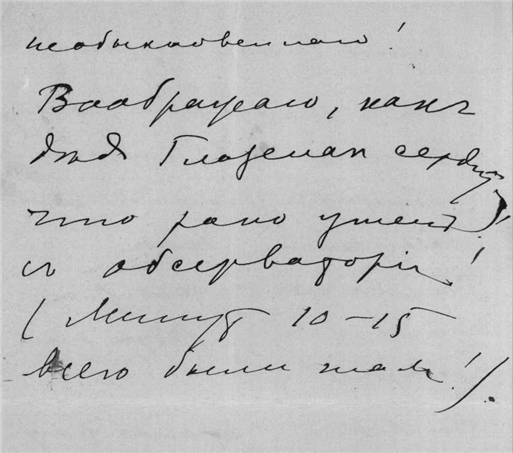 необыкновеннаго!
Воображаю, какъ
дядя Глазенап сердит,
что рано ушел
из обсерваторіи!
(Минут 10–15
всего были там!).